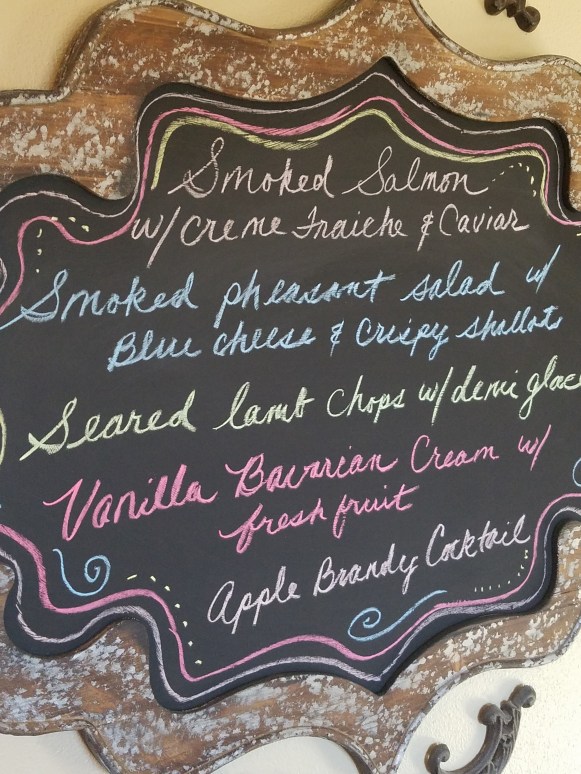 Smoked Salmon
w/ Creme Fraiche & Caviar
Smoked pheasant salad w/
Blue cheese & Crispy shallots
Seared lamb chops w/ demi glace
Vanilla Bavarian Cream w/
fresh fruit
Apple Brandy Cocktail